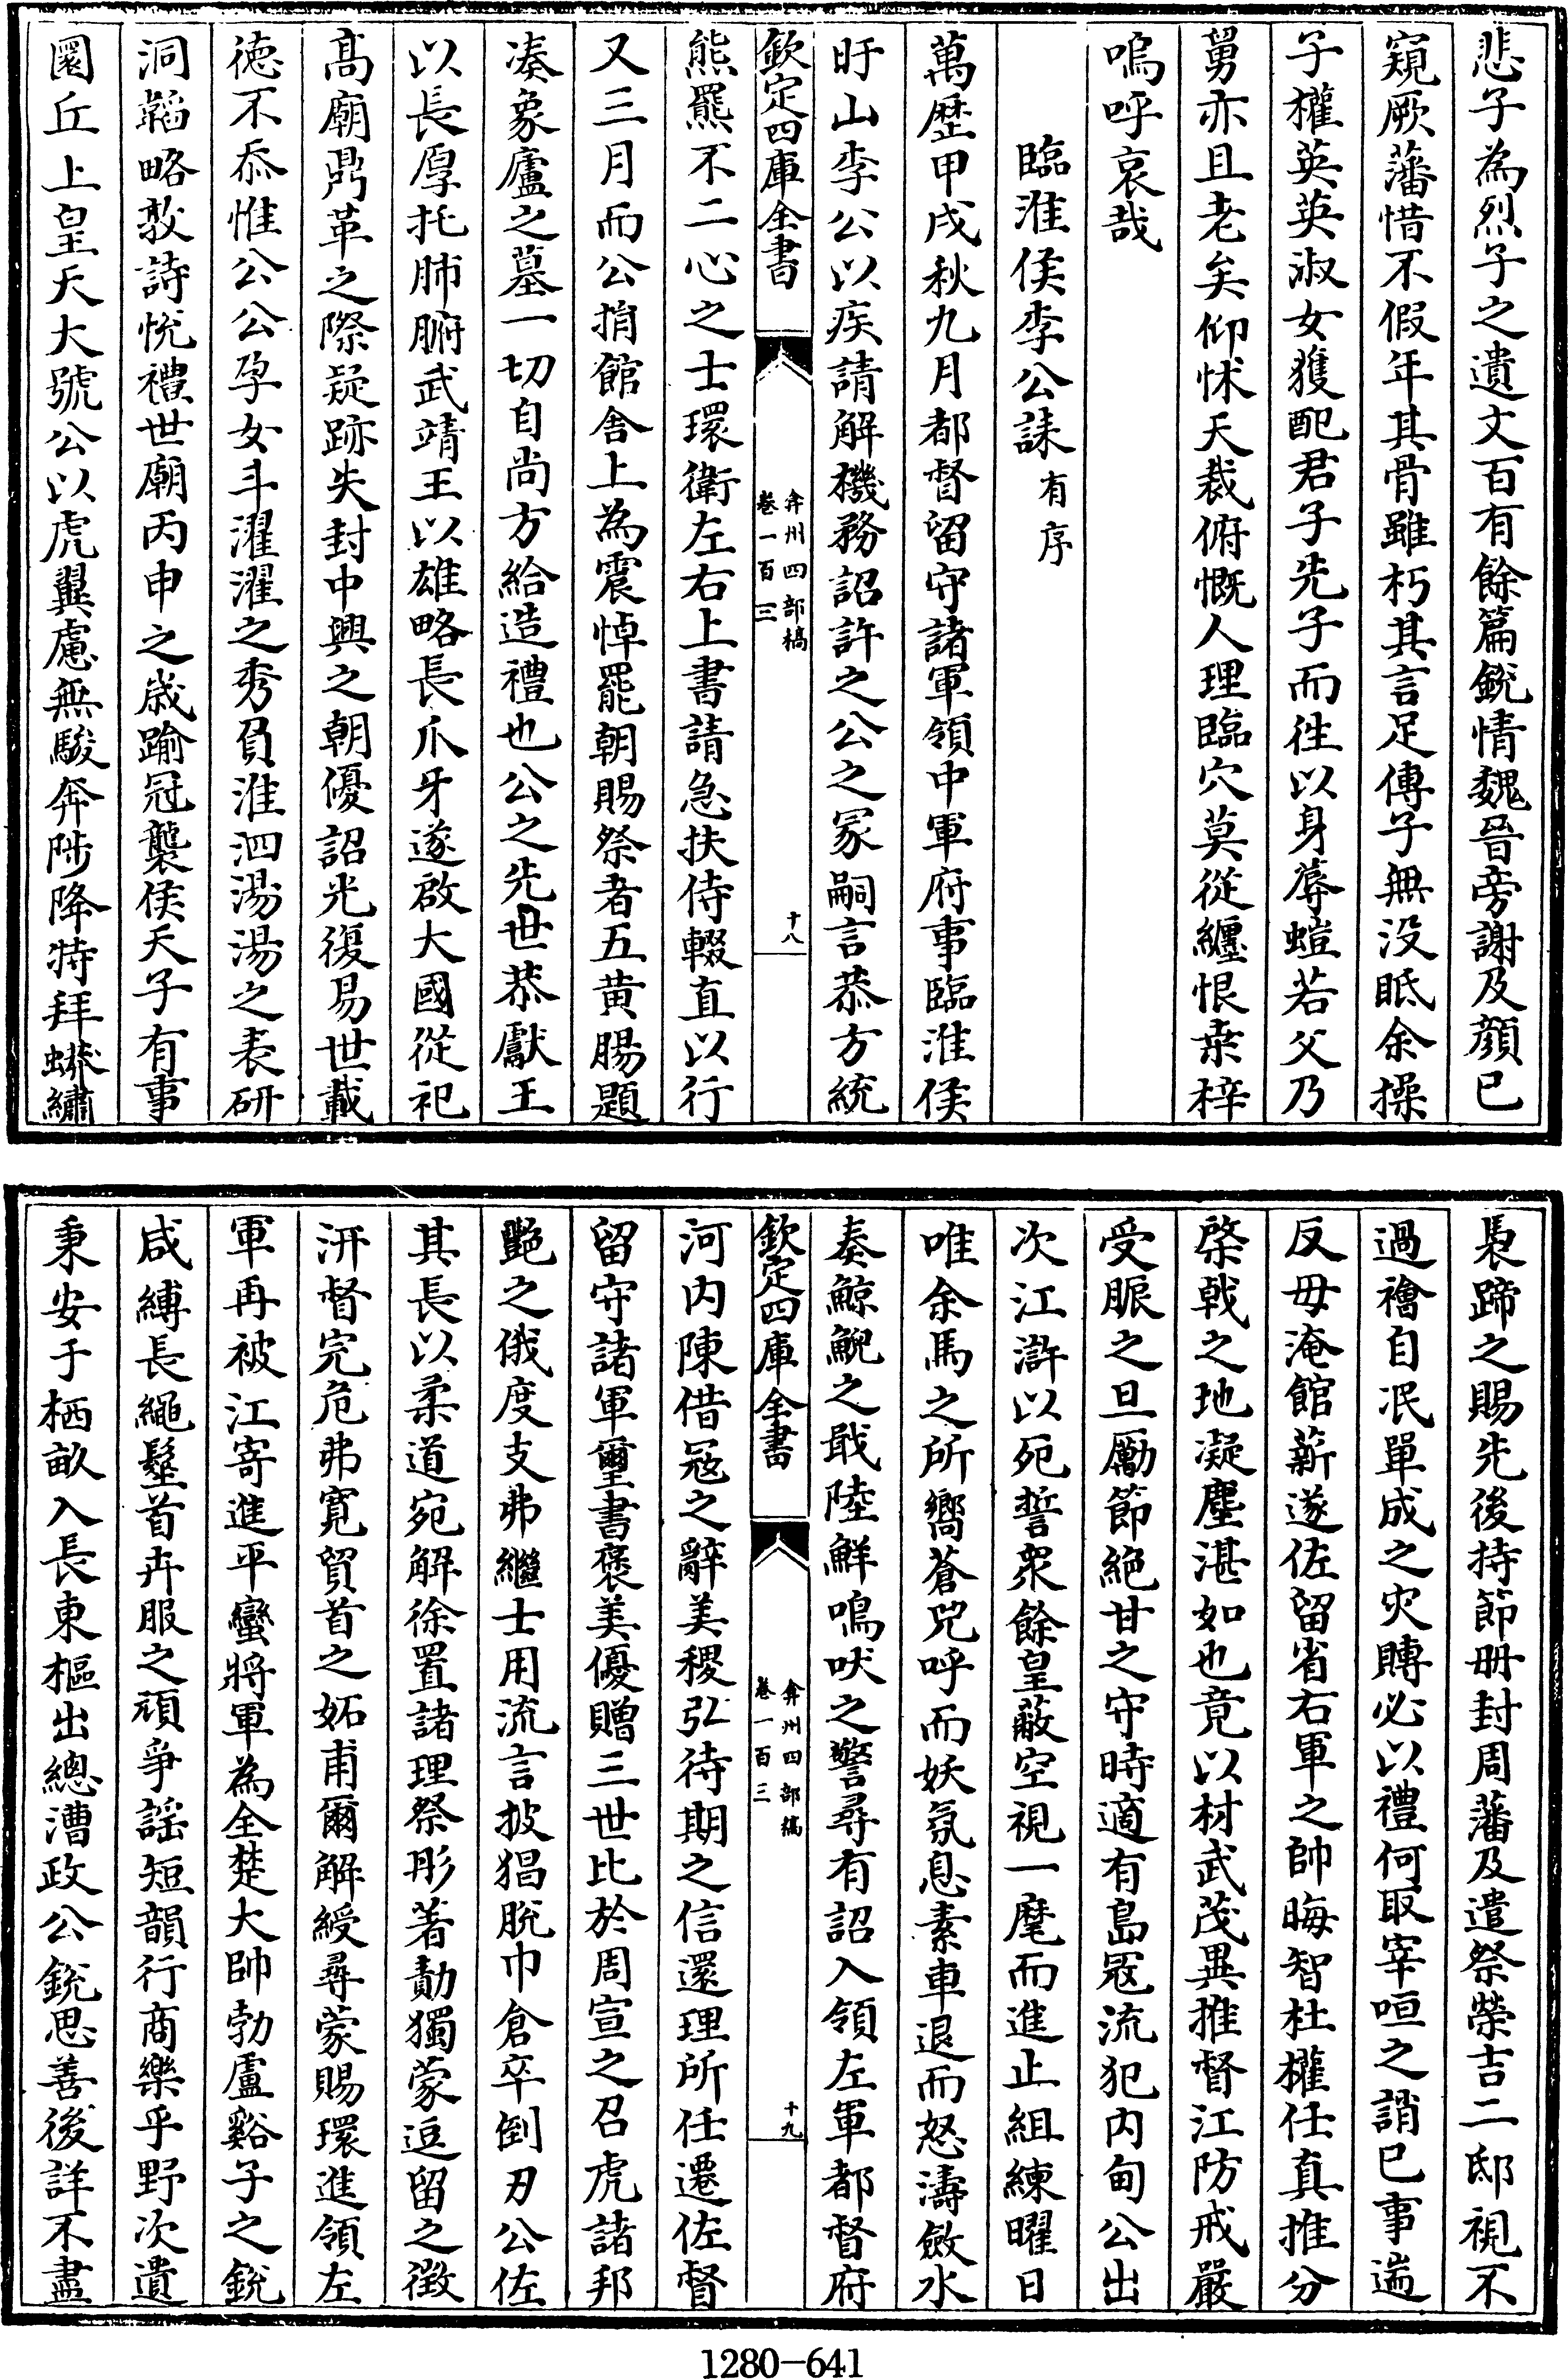 悲子為烈子之遺文百有餘篇銳情魏晉旁謝及顔已
窺厥藩惜不假年其骨雖朽其言足傳子無没眡余操
子權英英淑女獲配君子先子而徃以身蓐螘若父乃
舅亦且老矣仰怵天裁俯慨人理臨穴莫從纏恨桒梓
嗚呼哀哉
臨淮侯李公誄有序
萬歴甲戌秋九月都督留守諸軍領中軍府事臨淮侯
旴山李公以疾請解機務詔許之公之冡嗣言恭方統
欽定四庫全書
弇州四部稿
卷一百三
十八
熊羆不二心之士環衛左右上書請急扶侍輟直以行
又三月而公捐館舍上為震悼罷朝賜祭者五黄腸題
凑象廬之墓一切自尚方給造禮也公之先世恭獻王
以長厚托肺腑武靖王以雄略長爪牙遂啟大國從祀
髙廟鼎革之際疑跡失封中興之朝優詔光復易世載
徳不忝惟公公孕女斗濯濯之秀負淮泗湯湯之表研
洞韜略敦詩悅禮世廟丙申之歳踰冠襲侯天子有事
圜丘上皇天大號公以虎翼慮無駿奔陟降特拜蟒繡
褭蹄之賜先後持節冊封周藩及遣祭榮吉二邸視不
過襘自泯單成之灾賻必以禮何取宰咺之誚已事遄
反毋淹館薪遂佐留省右軍之帥晦智杜權任真推分
棨戟之地凝塵湛如也竟以材武茂異推督江防戒嚴
受脤之旦勵節絶甘之守時適有島冦流犯内甸公出
次江滸以死誓衆餘皇蔽空視一麾而進止組練曜日
唯余馬之所嚮蒼兕呼而妖氛息素車退而怒濤斂水
奏鯨鯢之戢陸鮮鳴吠之警尋有詔入領左軍都督府
欽定四庫全書
弇州四部稿
卷一百三
十九
河内陳借冦之辭美稷弘待期之信還理所任遷佐督
留守諸軍璽書褒美優贈三世比於周宣之召虎諸邦
艷之俄度支弗繼士用流言披猖脫巾倉卒倒刃公佐
其長以柔道宛解徐置諸理祭彤著勣獨蒙逗留之徴
汧督完危弗寛貿首之妬甫爾解綬尋蒙賜環進領左
軍再被江寄進平蠻將軍為全楚大帥勃盧谿子之銳
咸縳長繩髽首卉服之頑爭謡短韻行商樂乎野次遺
秉安于栖畝入長東樞出總漕政公銳思善後詳不盡
1280-641